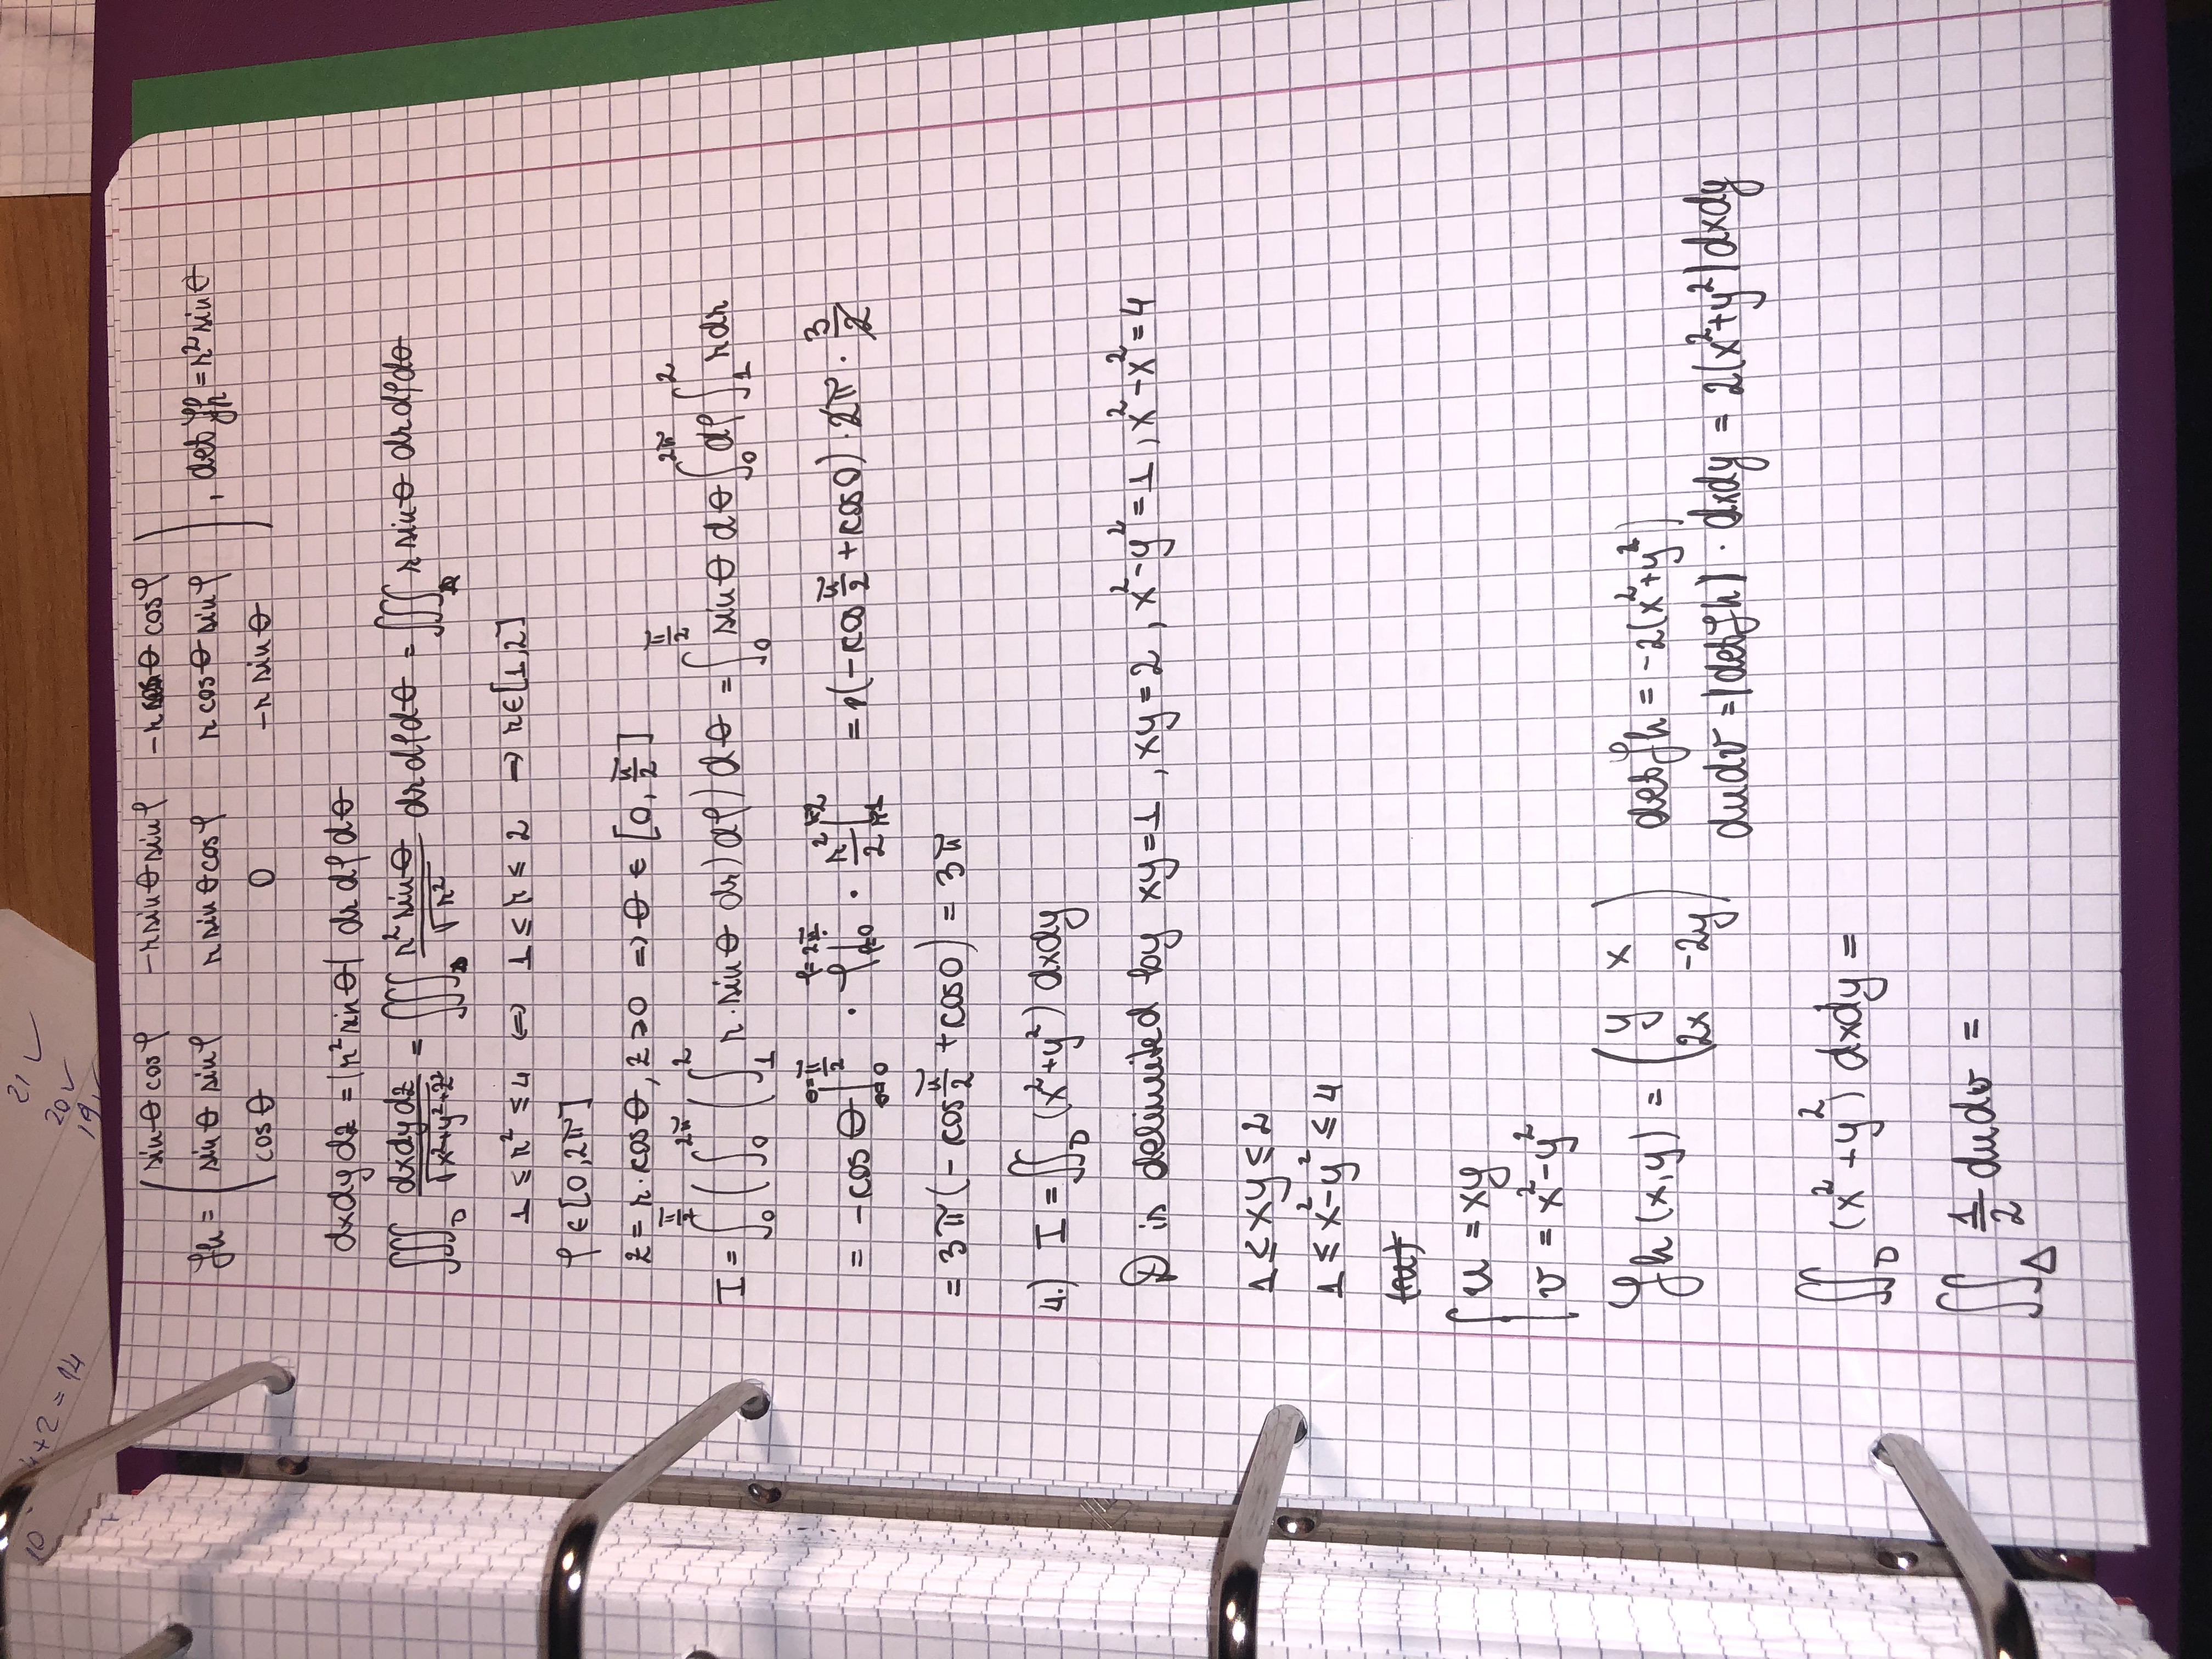 21 ✓
+2 = 14
20 ✓
19 ✓
Jh = ( sinθ cosφ   -r sinθ sinφ   -r cosθ cosφ
sinθ sinφ   r sinθ cosφ   r cosθ sinφ ) , det Jh = r² sinθ
cosθ   0   -r sinθ
dxdydz = |r² sinθ| dr dφ dθ
∭_D dxdydz/√(x²+y²+z²) = ∭_Δ r² sinθ/√(r²) dr dφ dθ = ∭_Δ r sinθ dr dφ dθ
1 ≤ r² ≤ 4 ⇔ 1 ≤ r ≤ 2 ⇒ r ∈ [1,2]
φ ∈ [0,2π]
z = r·cosθ, z ≥ 0 ⇒ θ ∈ [0, π/2]
I = ∫_0^{π/2} (∫_0^{2π} (∫_1^2 r·sinθ dr) dφ) dθ = ∫_0^{π/2} sinθ dθ ∫_0^{2π} dφ ∫_1^2 r dr
= -cosθ |_{θ=0}^{θ=π/2} · φ |_{φ=0}^{φ=2π} · r²/2 |_{r=1}^{r=2} = (-cos π/2 + cos 0) · 2π · 3/2
= 3π (-cos π/2 + cos 0) = 3π
4.) I = ∬_D (x²+y²) dxdy
D is delimited by xy=1, xy=2, x²-y²=1, x²-x²=4
1 ≤ xy ≤ 2
1 ≤ x²-y² ≤ 4
{ u = xy
v = x²-y²
Jh (x,y) = ( y   x
2x   -2y )
det Jh = -2(x²+y²)
dudv = |det Jh| · dxdy = 2(x²+y²) dxdy
∬_D (x²+y²) dxdy =
∬_Δ 1/2 dudv =